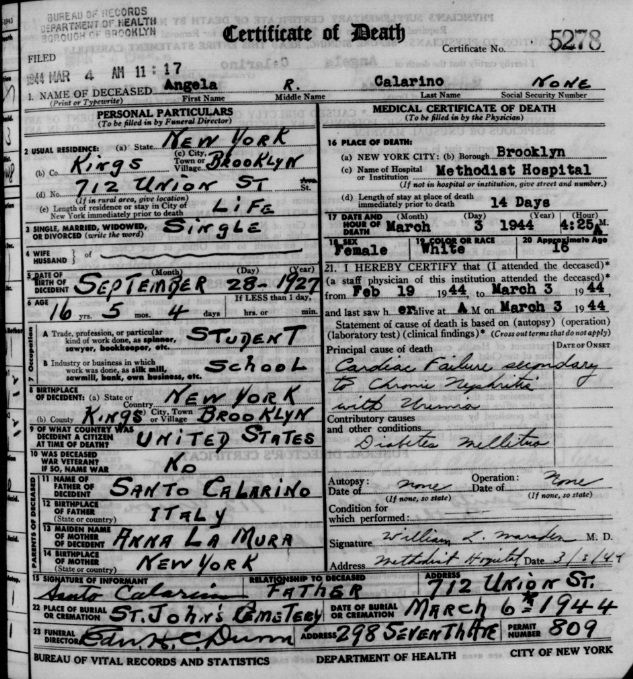 BUREAU OF RECORDS
DEPARTMENT OF HEALTH
BOROUGH OF BROOKLYN
Certificate of Death
Certificate No. 5278
FILED
1944 MAR 4 AM 11:17
1. NAME OF DECEASED Angela R. Calarino NONE
(Print or Typewrite) First Name Middle Name Last Name Social Security Number
PERSONAL PARTICULARS
(To be filled in by Funeral Director)
2 USUAL RESIDENCE: (a) State NEW YORK
(b) Co. KINGS (c) City, Town or Village BROOKLYN
(d) No. 712 UNION ST St.
(If in rural area, give location)
(e) Length of residence or stay in City of New York immediately prior to death LIFE
3 SINGLE, MARRIED, WIDOWED, OR DIVORCED (write the word) SINGLE
4 WIFE HUSBAND } of
5 DATE OF BIRTH OF DECEDENT (Month) (Day) (Year) SEPTEMBER 28-1927
6 AGE 16 yrs. 5 mos. 4 days If LESS than 1 day, hrs. or min.
7 Occupation
A Trade, profession, or particular kind of work done, as spinner, sawyer, bookkeeper, etc. STUDENT
B Industry or business in which work was done, as silk mill, sawmill, bank, own business, etc. SCHOOL
8 BIRTHPLACE OF DECEDENT: (a) State or Country NEW YORK
(b) County KINGS (c) City, Town or Village BROOKLYN
9 OF WHAT COUNTRY WAS DECEDENT A CITIZEN AT TIME OF DEATH? UNITED STATES
10 WAS DECEASED WAR VETERAN? IF SO, NAME WAR NO
PARENTS OF DECEASED
11 NAME OF FATHER OF DECEDENT SANTO CALARINO
12 BIRTHPLACE OF FATHER (State or country) ITALY
13 MAIDEN NAME OF MOTHER OF DECEDENT ANNA LA MURA
14 BIRTHPLACE OF MOTHER (State or country) NEW YORK
MEDICAL CERTIFICATE OF DEATH
(To be filled in by the Physician)
16 PLACE OF DEATH:
(a) NEW YORK CITY: (b) Borough Brooklyn
(c) Name of Hospital or Institution Methodist Hospital
(If not in hospital or institution, give street and number.)
(d) Length of stay at place of death immediately prior to death 14 Days
17 DATE AND HOUR OF DEATH (Month) (Day) (Year) (Hour) March 3 1944 4:25A M.
18 SEX Female 19 COLOR OR RACE White 20 Approximate Age 16
21. I HEREBY CERTIFY that (I attended the deceased)*
(a staff physician of this institution attended the deceased)*
from Feb 19 1944, to March 3 1944,
and last saw h er alive at A M on March 3 1944
Statement of cause of death is based on (autopsy) (operation)
(laboratory test) (clinical findings)* (Cross out terms that do not apply)
Principal cause of death DATE OF ONSET
Cardiac Failure secondary
to Chronic Nephritis
with Uremia
Contributory causes and other conditions
Diabetes Mellitus
Autopsy: Date of none Operation: Date of None
(If none, so state) (If none, so state)
Condition for which performed:
Signature William L. Marsden M. D.
Address Methodist Hospital Date 3/3/44
15 SIGNATURE OF INFORMANT RELATIONSHIP TO DECEASED ADDRESS
Santo Calarino FATHER 712 UNION ST.
22 PLACE OF BURIAL OR CREMATION ST. JOHN'S CEMETERY DATE OF BURIAL OR CREMATION MARCH 6th 1944
23 FUNERAL DIRECTOR C. Dunn ADDRESS 298 SEVENTH AVE PERMIT NUMBER 809
BUREAU OF VITAL RECORDS AND STATISTICS DEPARTMENT OF HEALTH CITY OF NEW YORK